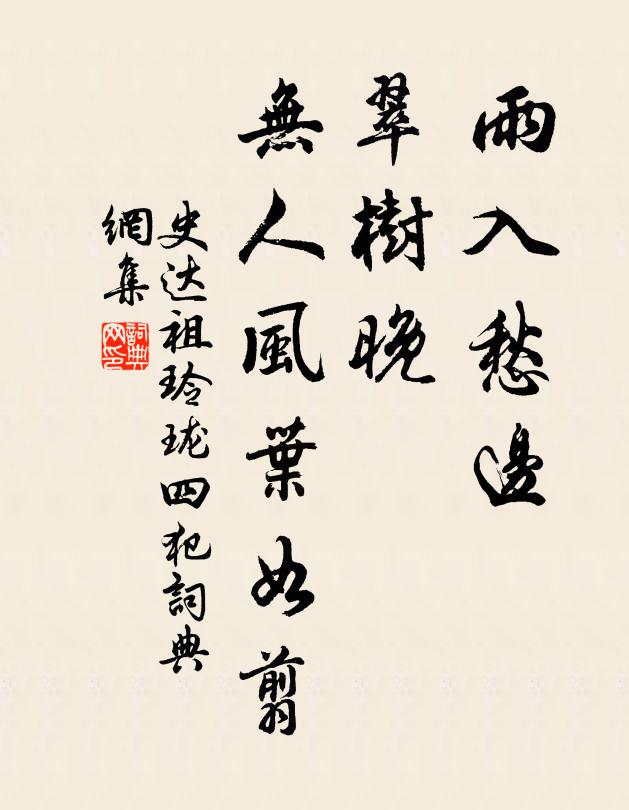 雨入愁邊
翠樹晚
無人風葉如翦
史达祖玲珑四犯詞典
網集
詞典網印